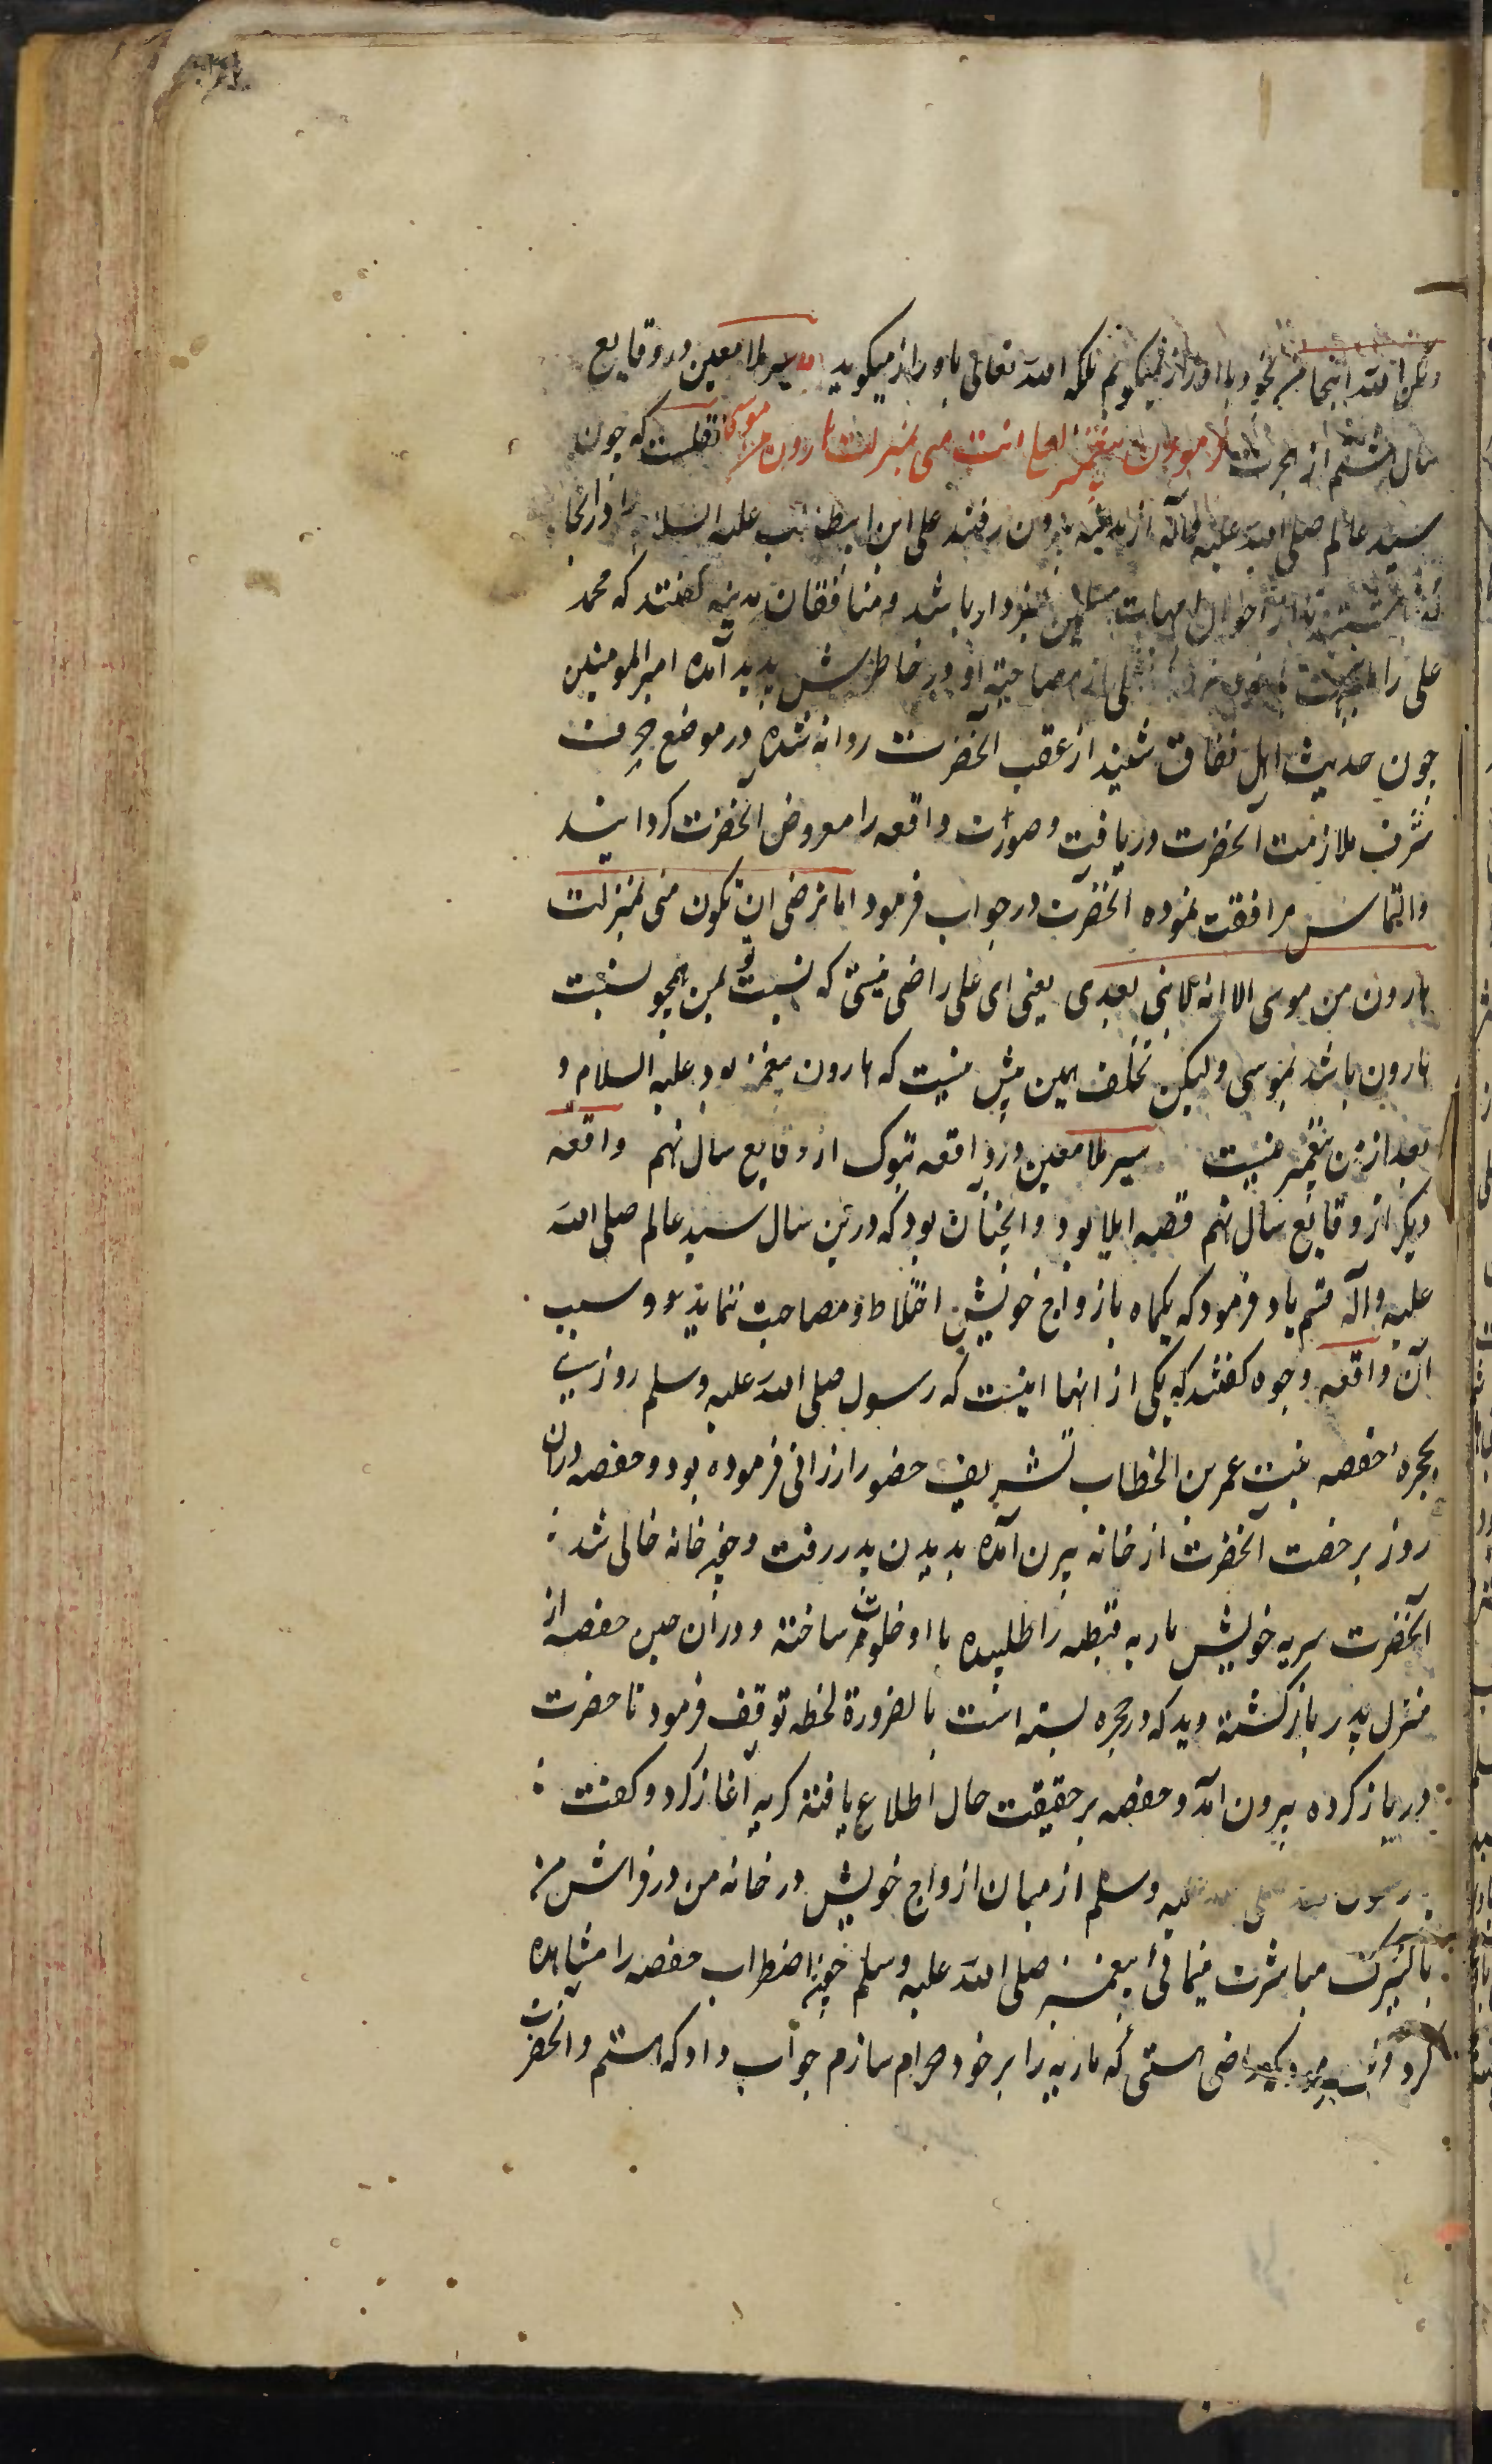 ولکن الله انتجاه من بخود با او راز نمیکویم بلکه الله تعالی باو راز میکوید سیر ملا معین در وقایع
سال هشتم از هجرت فرمودن پیغمبر لعلی انت منی بمنزلت هارون من موسی نقلست که چون
سید عالم صلی الله علیه وآله از مدینه بیرون رفتند علی ابن ابیطالب علیه السلام را در انجا
احوال امهات خبردار باشد و منافقان مدینه کفتند که محمد
علی را از مصاحبة او در خاطرش پدید آمده امیر المومنین
چون حدیث اهل نفاق شنید از عقب آنحضرت روانه شده در موضع جرف
شرف ملازمت آنحضرت دریافت و صورت واقعه را معروض آنحضرت کردانید
والتماس مرافقت نموده آنحضرت در جواب فرمود اما ترضی ان تکون منی بمنزلت
هارون من موسی الا انه لا نبی بعدی یعنی ای علی راضی نیستی که نسبت تو بمن همچو نسبت
هارون باشد بموسی ولیکن تخلف همین پیش نیست که هارون پیغمبر بود علیه السلام و
بعد از من پیغمبر نیست سیر ملا معین در واقعه تبوک از وقایع سال نهم واقعه
دیکر از وقایع سال نهم قصه ایلا بود و انچنان بود که درین سال سید عالم صلی الله
علیه وآله قسم یاد فرمود که یکماه بازواج خویش اختلاط و مصاحبت ننماید و سبب
آن واقعه وجوه کفتند که یکی از انها اینست که رسول صلی الله علیه وسلم روزی
بحجره حفصه بنت عمر بن الخطاب تشریف حضور ارزانی فرموده بود و حفصه دران
روز برخصت آنحضرت از خانه بیرن آمده بدیدن پدر رفت و چون خانه خالی شد
آنحضرت سریه خویش ماریه قبطیه را طلبیده با او خلوت ساخته و دران حین حفصه از
منزل پدر بازکشته دید که در حجره بسته است بالضرورة لحظه توقف فرمود تا حضرت
در باز کرده بیرون آمد و حفصه بر حقیقت حال اطلاع یافته کریه آغاز کرد و کفت
رسول الله صلی الله علیه وسلم از میان ازواج خویش در خانه من در فراش من
با کنیزک مباشرت مینمائی پیغمبر صلی الله علیه وسلم چون اضطراب حفصه را مشاهده
کرد راضی هستی که ماریه را بر خود حرام سازم جواب داد که هستم و آنحضرت